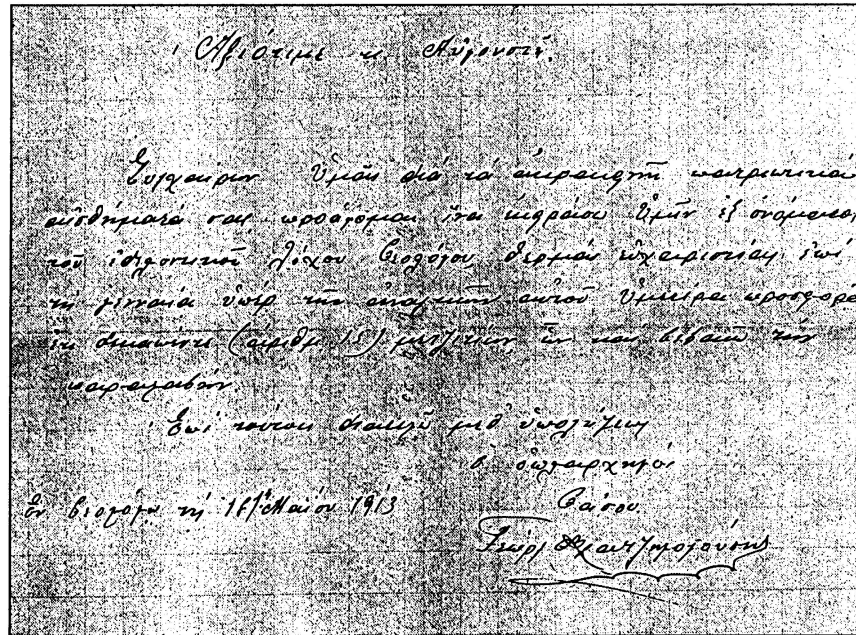 Ἀξιότιμε κ. Αὐγουστῆ,
Συγχαίρων Ὑμᾶς διὰ τὰ ἀκραιφνῆ πατριωτικά
αἰσθήματά σας, προάγομαι ἵνα ἐκφράσω Ὑμῖν ἐξ ὀνόματος
τοῦ ἐθελοντικοῦ λόχου Θεολόγου θερμὰς εὐχαριστίας ἐπὶ
τῇ γενναίᾳ ὑπὲρ τῶν ἀναγκῶν αὐτοῦ Ὑμετέρᾳ προσφορᾷ
ἐκ δεκαπέντε (ἀριθμ 15) μετζιτίων, ὧν καὶ βεβαιῶ τὴν
παραλαβήν.
Ἐπὶ τούτοις διατελῶ μεθ' ὑπολήψεως
ὁ ὁπλαρχηγός
Θάσου
Ἐν Θεολόγῳ τῇ Μαΐου 1913
Γεώργ